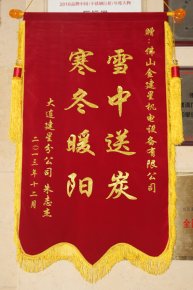 赠：佛山金建星机电设备有限公司
雪中送炭
寒冬暖阳
大道建星分公司 朱志杰
二〇一三年十二月